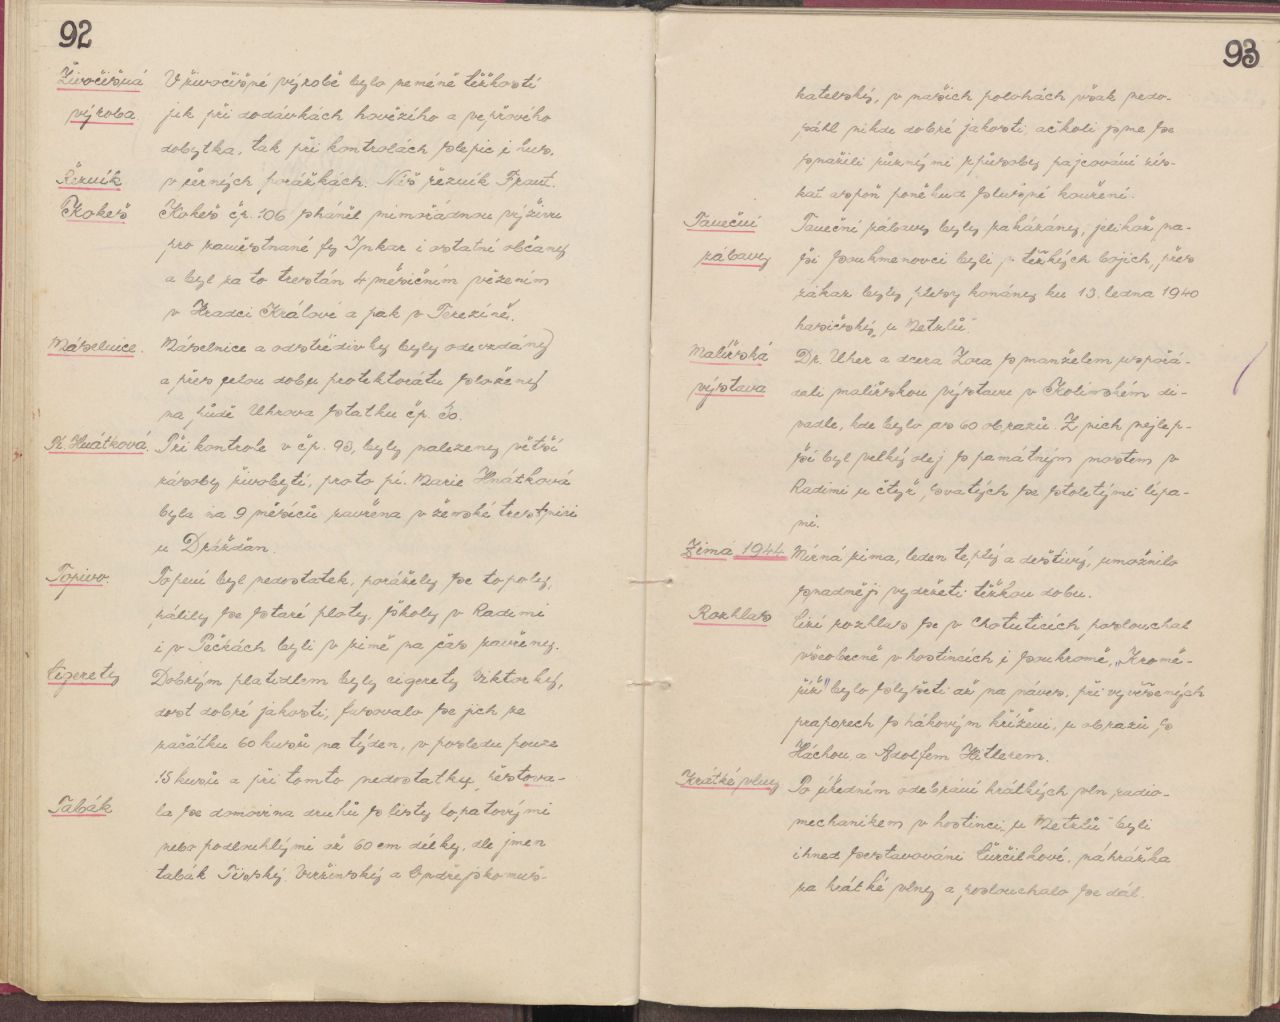 92
Živočišná V živočišné výrobě bylo neméně těžkostí
výroba. jak při dodávkách hovězího a vepřového
dobytka, tak při kontrolách slepic i hus.
Řezník v černých porážkách. Náš řezník Frant.
Kokeš Kokeš čp. 106 sháněl mimořádnou výživu
pro zaměstnané fy Inkar i ostatní občany
a byl za to trestán 4 měsíčním vězením
v Hradci Králové a pak v Terezíně.
Máselnice. Máselnice a odstředivky byly odevzdány
a přes celou dobu protektorátu složeny
na půdě Uhrova statku čp.
Pí. Hnátková. Při kontrole v čp. 93, byly nalezeny větší
zásoby živobytí, proto pí. Marie Hnátková
byla na 9 měsíců zavřena v ženské trestnici
u Drážďan.
Topivo. Topení byl nedostatek, porážely se topoly,
pálily se staré ploty, školy v Radimi
i v Pečkách byli v zimě na čas zavřeny.
Cigarety Dobrým platidlem byly cigarety Viktorky,
dost dobré jakosti, fasovalo se jich ze
začátku 60 kusů na týden, v posledu pouze
15 kusů a při tomto nedostatku, pěstova-
Tabák la se domovina druhů s listy lopatovými
nebo podlouhlými až 60 cm délky, dle jmen
tabák Tiský, Viržinský a Ondřejskomus-
93
katelský, v našich polohách však nedo-
sáhl nikde dobré jakosti, ačkoli jsme se
snažili různými způsoby pajcování zís-
kat aspoň poněkud slušné kouření.
Taneční Taneční zábavy byly zakázány, jelikož na-
zábavy ši soukmenovci byli v těžkých bojích, přes
zákaz byly plesy konány ku 13. ledna 1940
hasičský „u Metzlů“.
Malířská Dr. Uher a dcera Zora s manželem uspořá-
výstava dali malířskou výstavu v Kolínském di-
vadle, kde bylo as 60 obrazů. Z nich nejlep-
ší byl velký olej s památným mostem v
Radimi u čtyř svatých se stoletými lípa-
mi.
Zima 1944 Mírná zima, leden teplý a deštivý, umožnilo
snadněji vydržeti těžkou dobu.
Rozhlas Cizí rozhlas se v Chotuticích poslouchal
všeobecně v hostincích i soukromě, „Kromě-
říž“ bylo slyšeti až na náves, při vyvěšených
praporech s hákovým křížem, u obrazů s
Háchou a Adolfem Hitlerem.
Krátké vlny Po úředním odebrání krátkých vln, radio-
mechanikem v hostinci „u Metzlů“ byli
ihned sestavováni čurčilkové, náhražka
za krátké vlny a poslouchalo se dál.